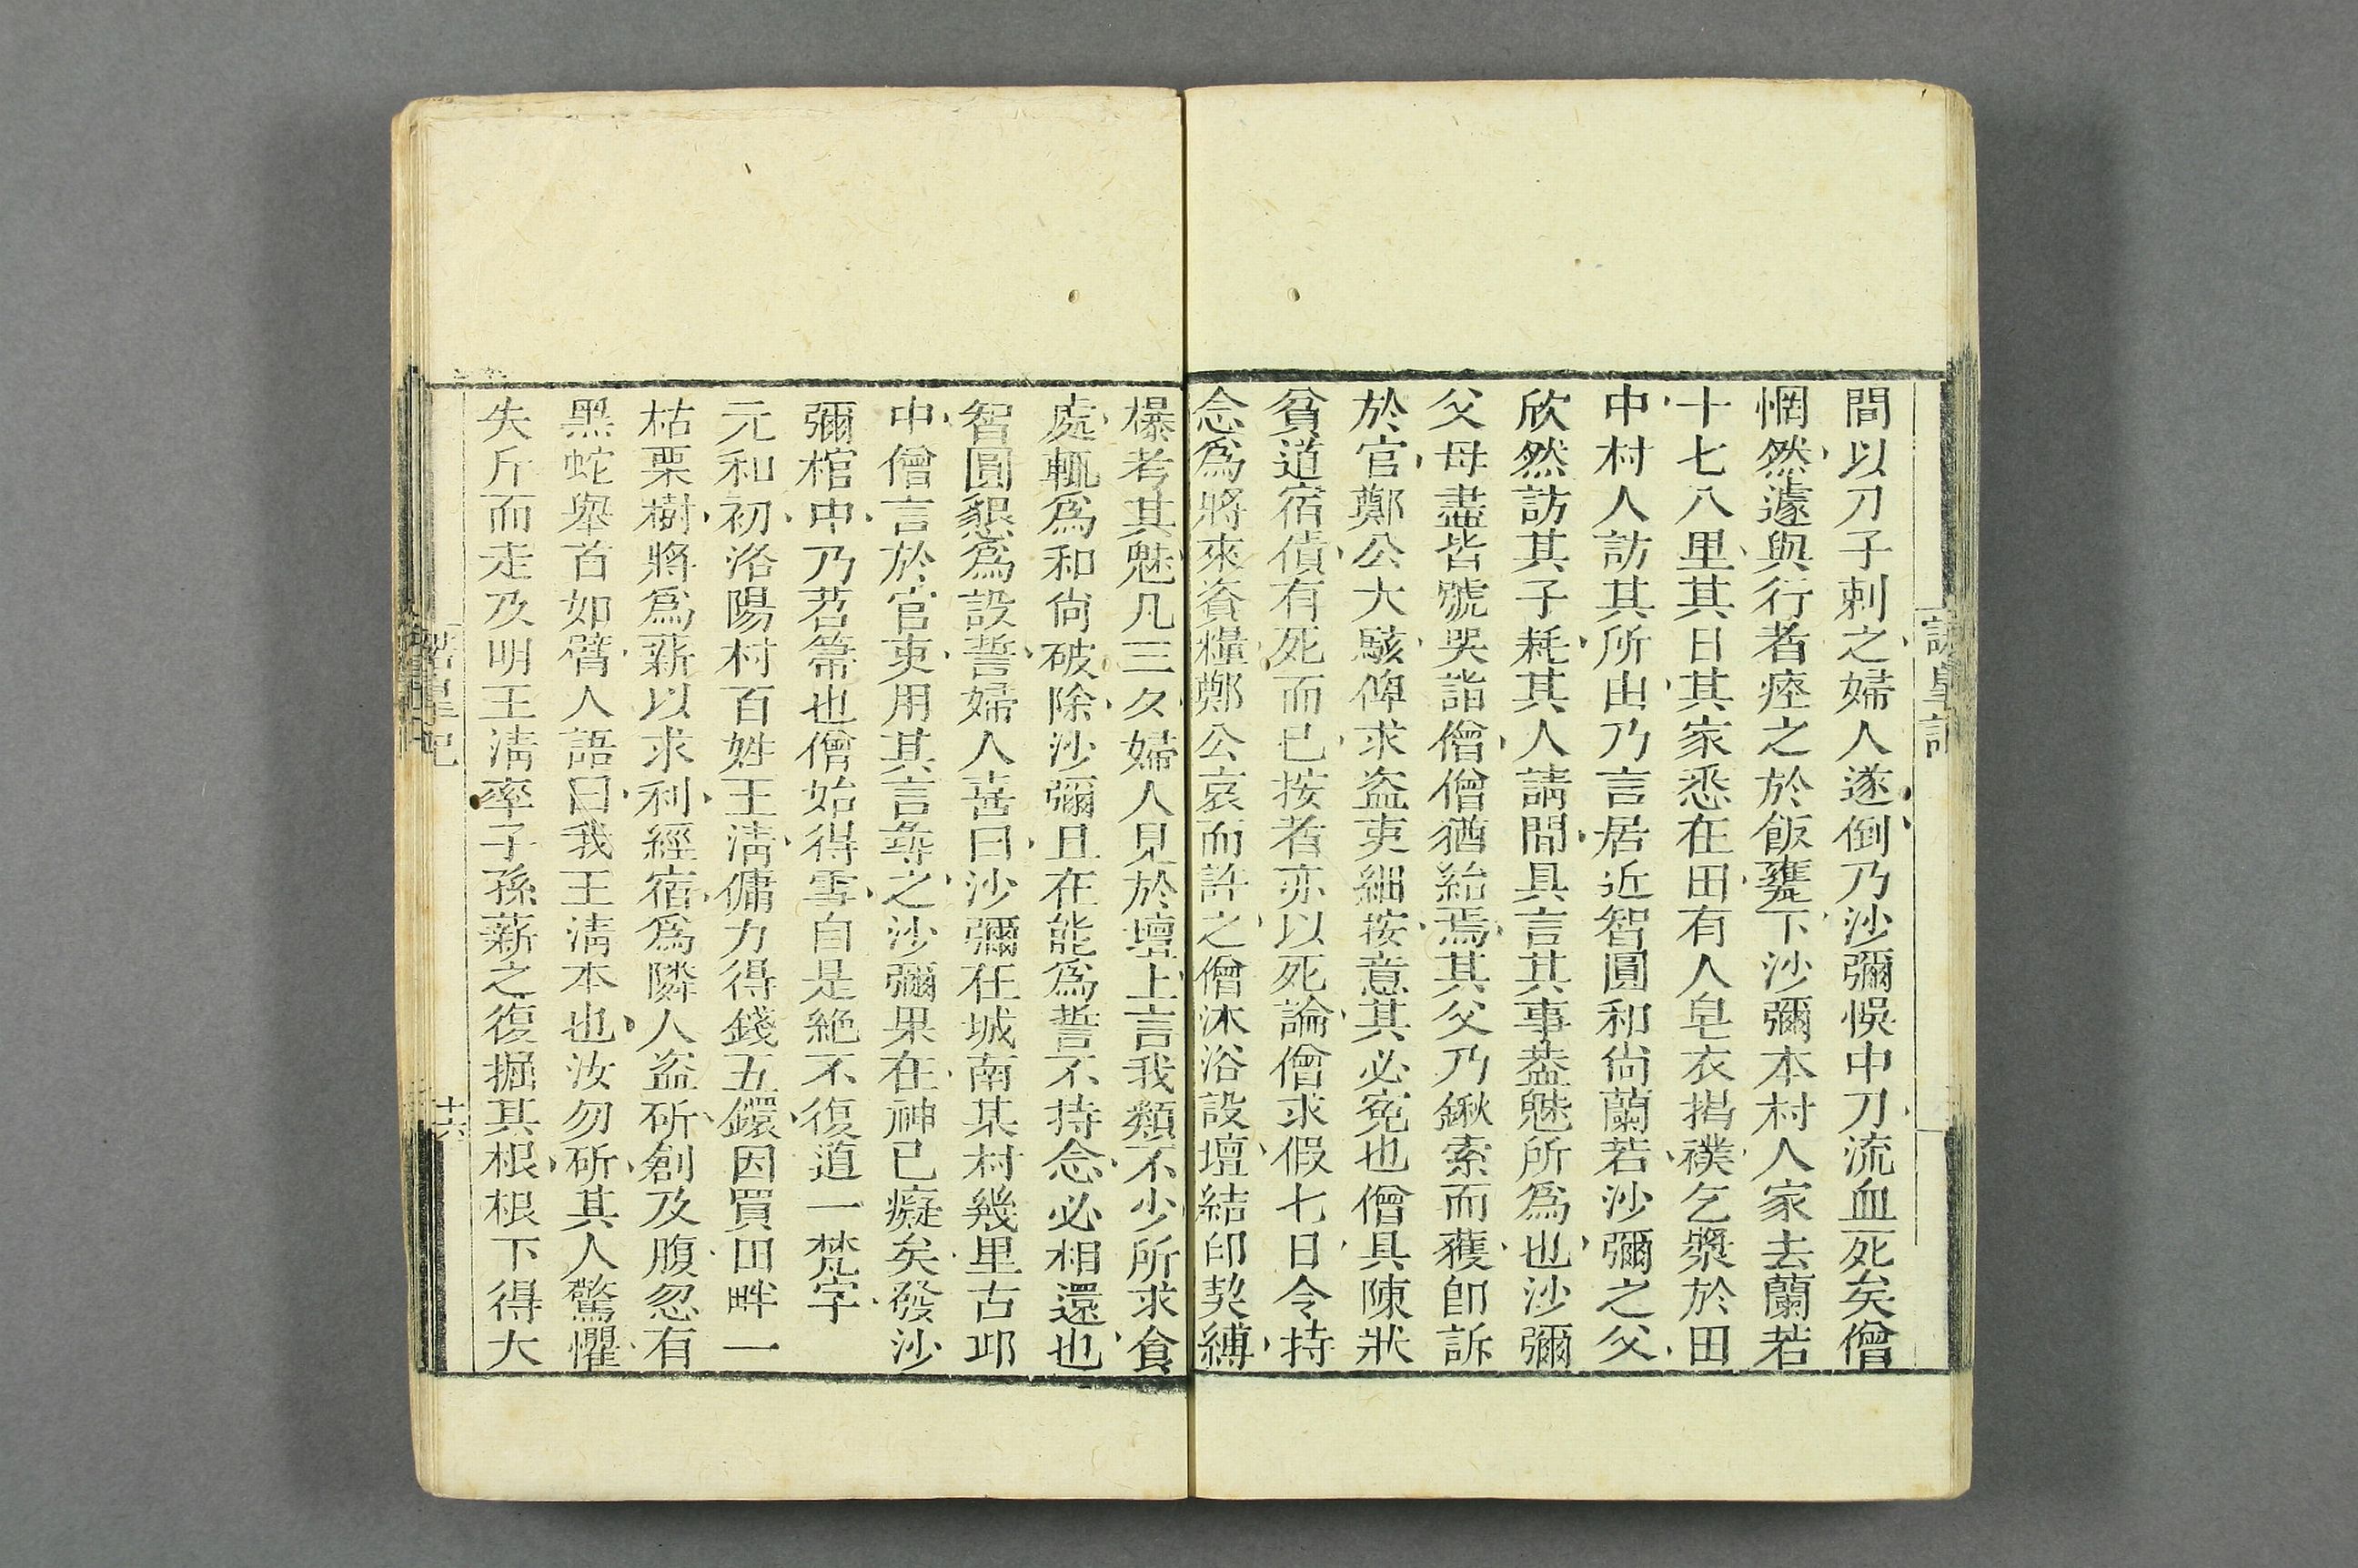 間以刀子刺之婦人遂倒乃沙彌悞中刀流血死矣僧
惘然遽與行者瘞之於飯甕下沙彌本村人家去蘭若
十七八里其日其家悉在田有人皂衣揭襆乞漿於田
中村人訪其所由乃言居近智圓和尙蘭若沙彌之父
欣然訪其子耗其人請間具言其事葢魅所爲也沙彌
父母盡皆號哭詣僧僧猶紿焉其父乃鍬索而獲卽訴
於官鄭公大駭俾求盗吏細按意其必寃也僧具陳狀
貧道宿債有死而已按者亦以死論僧求假七日令持
念爲將來資糧鄭公哀而許之僧沐浴設壇結印契縛
㯷考其魅凡三夂婦人見於壇上言我類不少所求食
處輒爲和尙破除沙彌且在能爲誓不持念必相還也
智圓懇爲設誓婦人喜曰沙彌在城南某村幾里古邱
中僧言於官吏用其言尋之沙彌果在神已癡矣發沙
彌棺中乃苕箒也僧始得雪自是絶不復道一梵字
元和初洛陽村百姓王淸傭力得錢五鐶因買田畔一
枯栗樹將爲薪以求利經宿爲隣人盗斫創及腹忽有
黑蛇舉首如臂人語曰我王淸本也汝勿斫其人驚懼
失斤而走及明王淸率子孫薪之復掘其根根下得大
諾皐記
十六